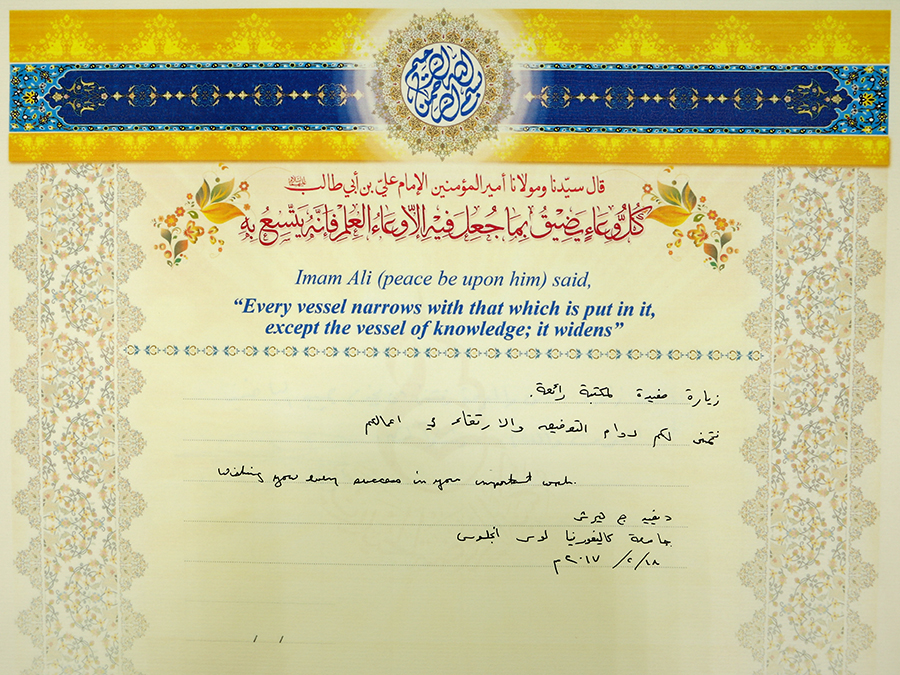 بسم الله الرحمن الرحيم
قال سيّدنا ومولانا أمير المؤمنين الإمام عليّ بن أبي طالب
كُلُّ وِعَاءٍ يَضِيْقُ بِمَا جُعِلَ فِيْهِ إِلاّ وِعَاءُ العِلْمِ فَإِنَّهُ يَتَّسِعُ بِهِ
Imam Ali (peace be upon him) said,
“Every vessel narrows with that which is put in it,
except the vessel of knowledge; it widens”
زيارة مفيدة لمكتبة رائعة.
نتمنى لكم دوام التوفيق والارتقاء في اعمالكم
Wishing you every success in your important work.
ديفيد ج هيرش
جامعة كاليفورنيا لوس انجلوس
١٨/ ٢/ ٢٠١٧م
/ /